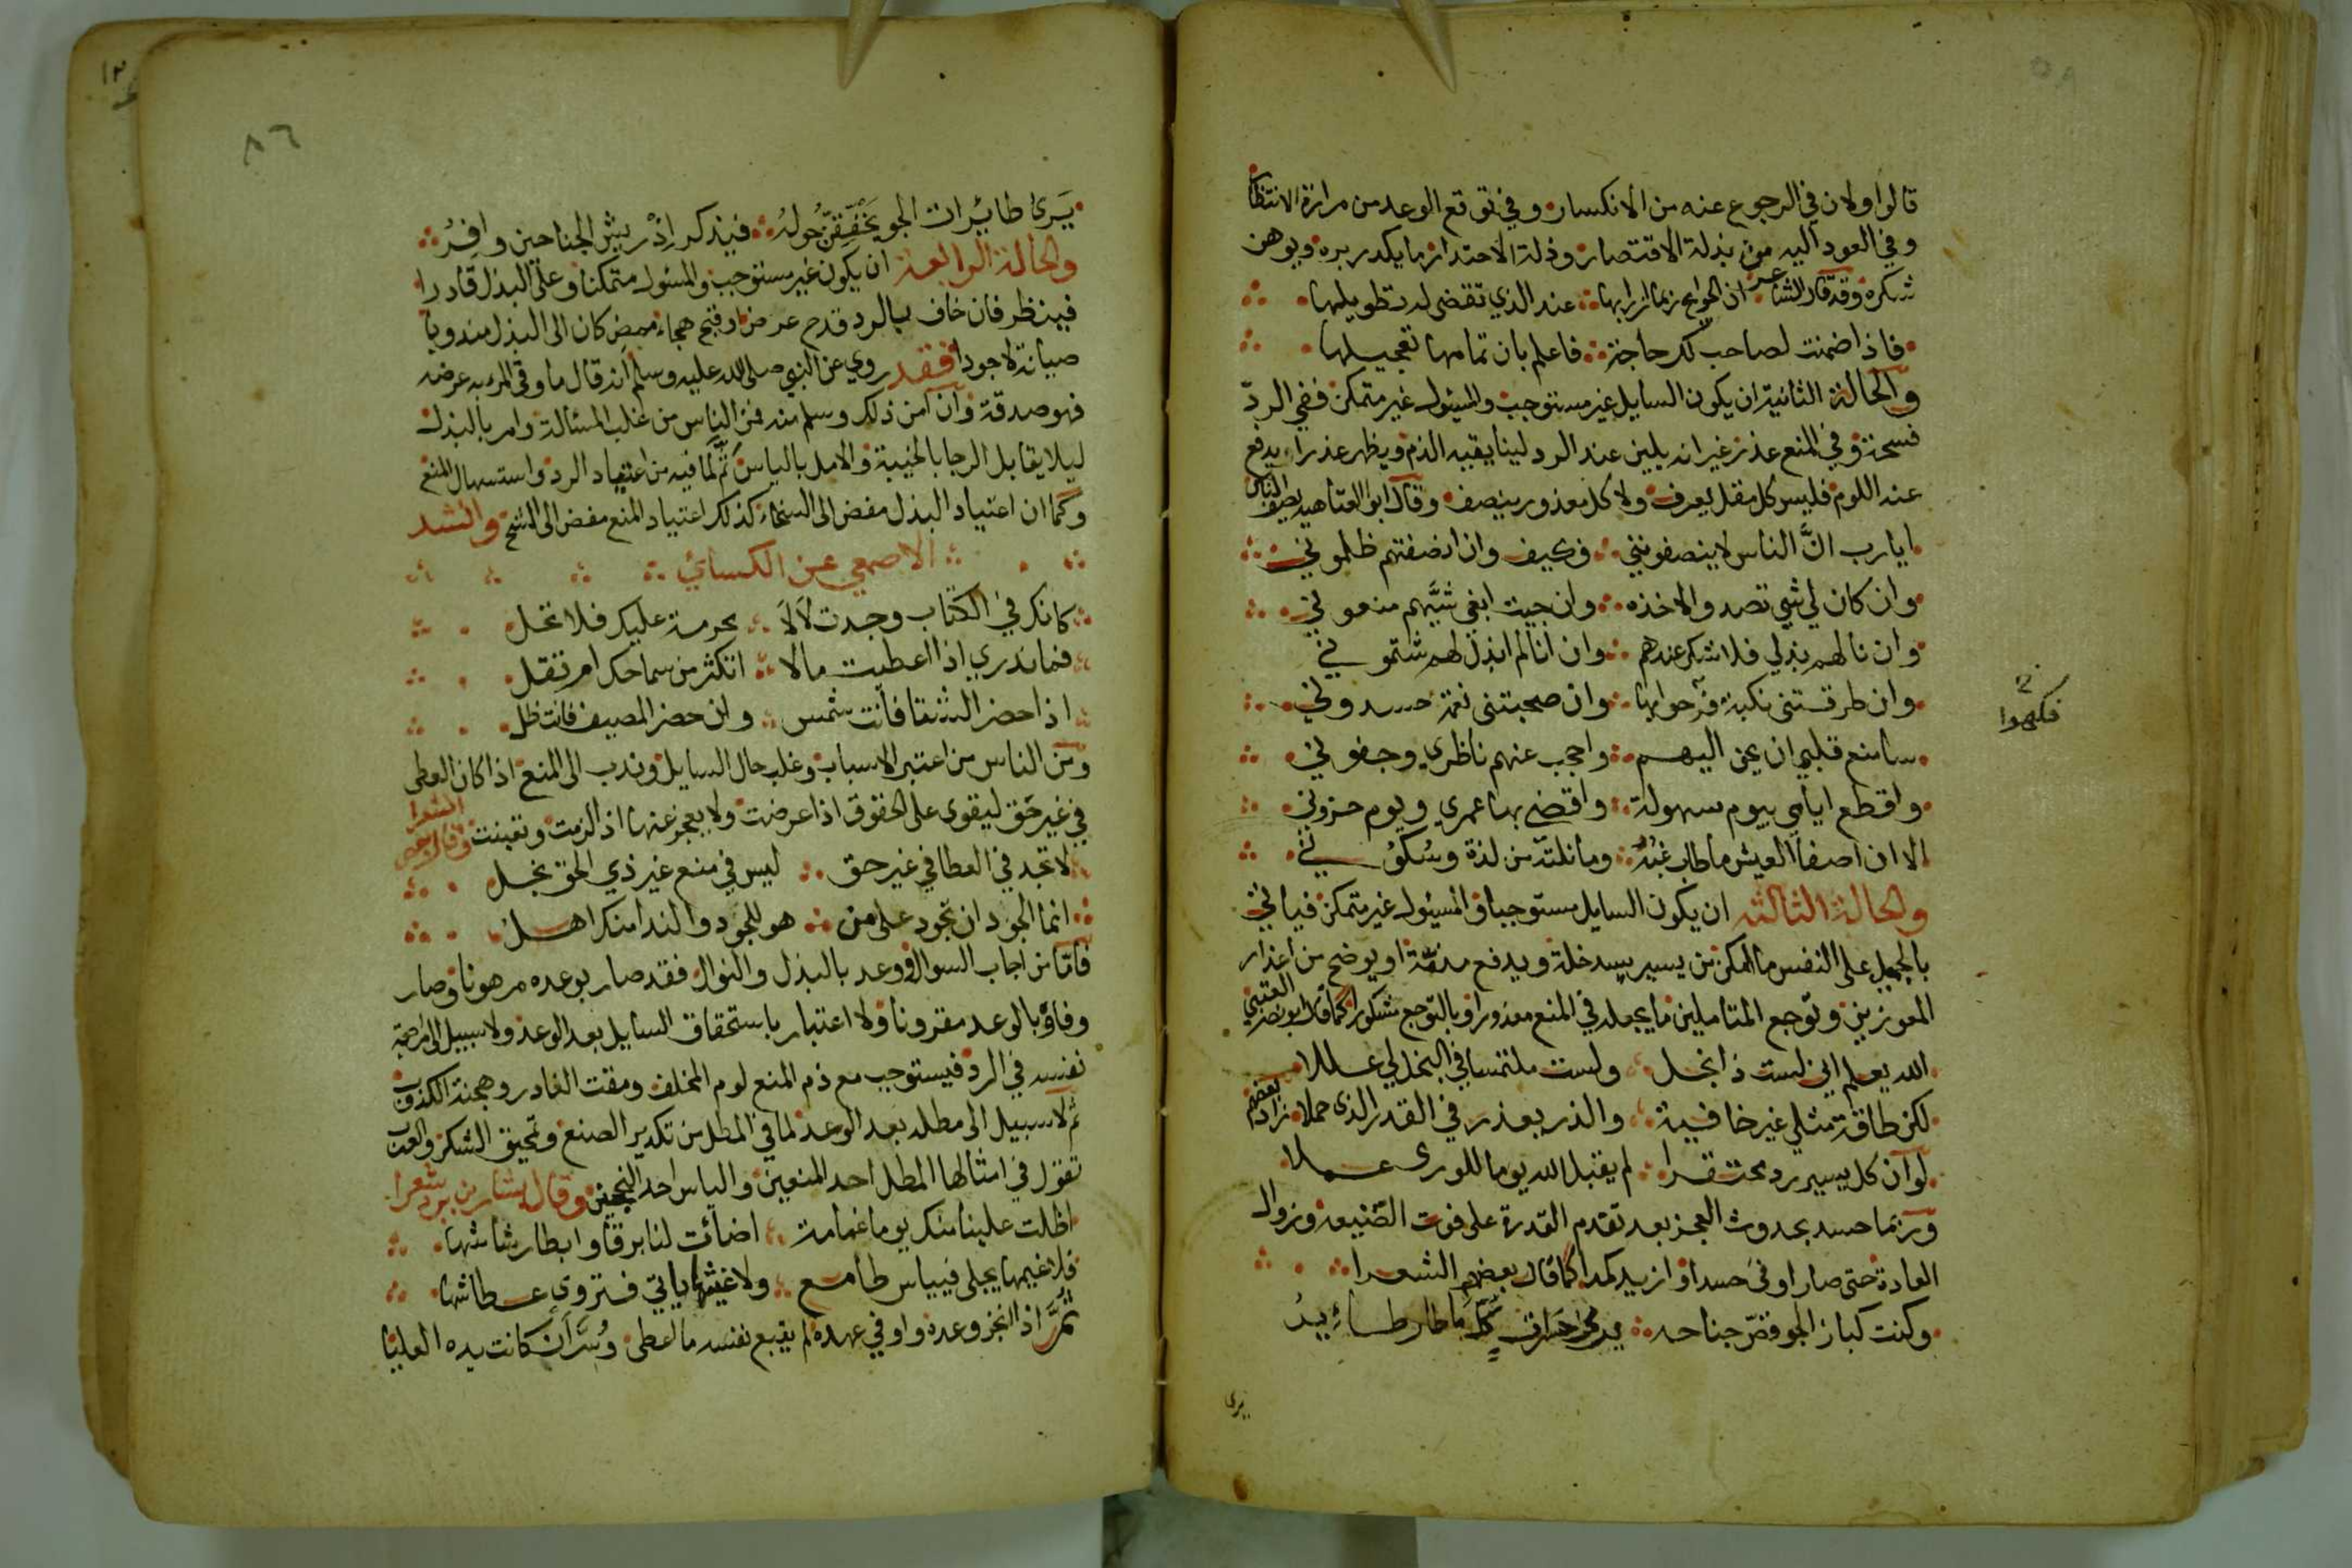 قالوا ولان في الرجوع عنه من الانكسار وفي توقع الوعد من مرارة الانتظار
وفي العود اليه من بذلة الاقتصار وذلة الاحتدار ما يكدر بره ويوهن
شكره وقد قال الشاعر ان الحوايج ربما ازرا بها عند الذي تقضى له تطويلها
فاذا ضمنت لصاحب لك حاجة فاعلم بان تمامها تعجيلها
والحالة الثانية ان يكون السايل غير مستوجب والمسئول غير متمكن ففي الردّ
فسحة وفي المنع عذر غير انه يلين عند الرد لينا يقيه الذم ويظهر عذرا يدفع
عنه اللوم فليس كل مقل يعرف ولا كل معذور ينصف وقال ابو العتاهيه يصف الناس
ايارب انَّ الناس لا ينصفونني فكيف وان انصفتهم ظلموني
وان كان لي شي تصدوا لاخذه وان جيت ابغي شيَّهم منعوني
وان نالهم بذلي فلا شكر عندهم وان انا لم ابذل لهم شتموني
وان طرقتني نكبة فرحوا بها وان صحبتني نعمة حسدوني
فكهوا
سامنع قلبي ان يحن اليهم واحجب عنهم ناظري وجفوني
واقطع ايامي بيوم سهولة واقضي بها عمري ويوم حزوني
الا ان اصفا العيش ما طاب غبه وما نلته من لذة وسكوني
والحالة الثالثه ان يكون السايل مستوجبا والمسئول غير متمكن فياتي
بالجميل على النفس ما امكن من يسير يسد خلة ويدفع مذمة او يوضح من اعذار
المعوزين وتوجع المتأملين ما يجعله في المنع معذورا وبالتوجع مشكورا كما قال ابو نصر العتبي
الله يعلم اني لست ذا بخل ولست ملتمسا في البخل لي عللا
لكن طاقة مثلي غير خافية والذر يعذر في القدر الذي حملا زاد بعضهم
لو ان كل يسير رد محتقرا لم يقبل الله يوما للورى عملا
وربما حسد بحدوث العجز بعد تقدم القدرة على فوت الصنيعه وزوال
العادة حتى صار اوفى حسدا وازيد كمدا كما قال بعضهم الشعرا
وكنت كباز الجو قص جناحه يرى حسرات كلما طار طايرُ
يرى
٨٦
يَرى طائرات الجو يخفقن حوله فيذكر اذ ريش الجناحين وافرُ
والحالة الرابعة ان يكون غير مستوجب والمسئول متمكنا وعلى البذل قادرا
فينظر فان خاف بالرد قدح عرض او قبح هجاء ممض كان الى البذل مندوبا
صيانة لا جودا فقد روي عن النبي صلى الله عليه وسلم انه قال ما وقى المرء به عرضه
فهو صدقة وان امن ذلك وسلم منه فمن الناس من غلب المسئالة وامر بالبذل
ليلا يقابل الرجا بالخيبة والامل بالياس ثم لما فيه من اعتياد الرد واستسهال المنع
وكما ان اعتياد البذل مفض الى السخاء كذلك اعتياد المنع مفض الى الشح وانشد
الاصمعي عن الكسائي
كانك في الكتاب وجدت لَالَا محرمة عليك فلا تحل
فما تدري اذا اعطيت مالا اتكثر من سماحك ام تقل
اذا حضر الشتا فانت شمس وان حضر المصيف فانت ظل
ومن الناس من اعتبر الاسباب وغلب حال السايل وندب الى المنع اذا كان العطى
في غير حق ليقوى على الحقوق اذا عرضت ولا يعجز عنها اذ الزمت وتعينت وقال بعض الشعرا
لا تجد في العطا في غير حق ليس في منع غير ذي الحق بخل
انما الجود ان تجود على من هو للجود والندا منك اهل
فاما من اجاب السوال ووعد بالبذل والنوال فقد صار بوعده مرهونا وصار
وفاؤ بالوعد مقرونا ولا اعتبار باستحقاق السايل بعد الوعد ولا سبيل الى مراجعة
نفسه في الرد فيستوجب مع ذم المنع لوم المخلف ومقت الغادر وهجنة الكذوب
ثم لا سبيل الى مطله بعد الوعد لما في المطل من تكدير الصنع وتمحيق الشكر والعرب
تقول في امثالها المطل احد المنعين والياس احد النجحين وقال بشار بن برد شعرا
اظلت علينا منك يوما غمامة اضائت لنا برقا وابطا رشاشها
فلا غيمها يجلى فيياس طامع ولا غيثها ياتي فتروى عطاشها
ثمَّ اذا انجز وعده واوفي عهده لم يتبع نفسه ما اعطى وسُرَّ ان كانت يده العليا